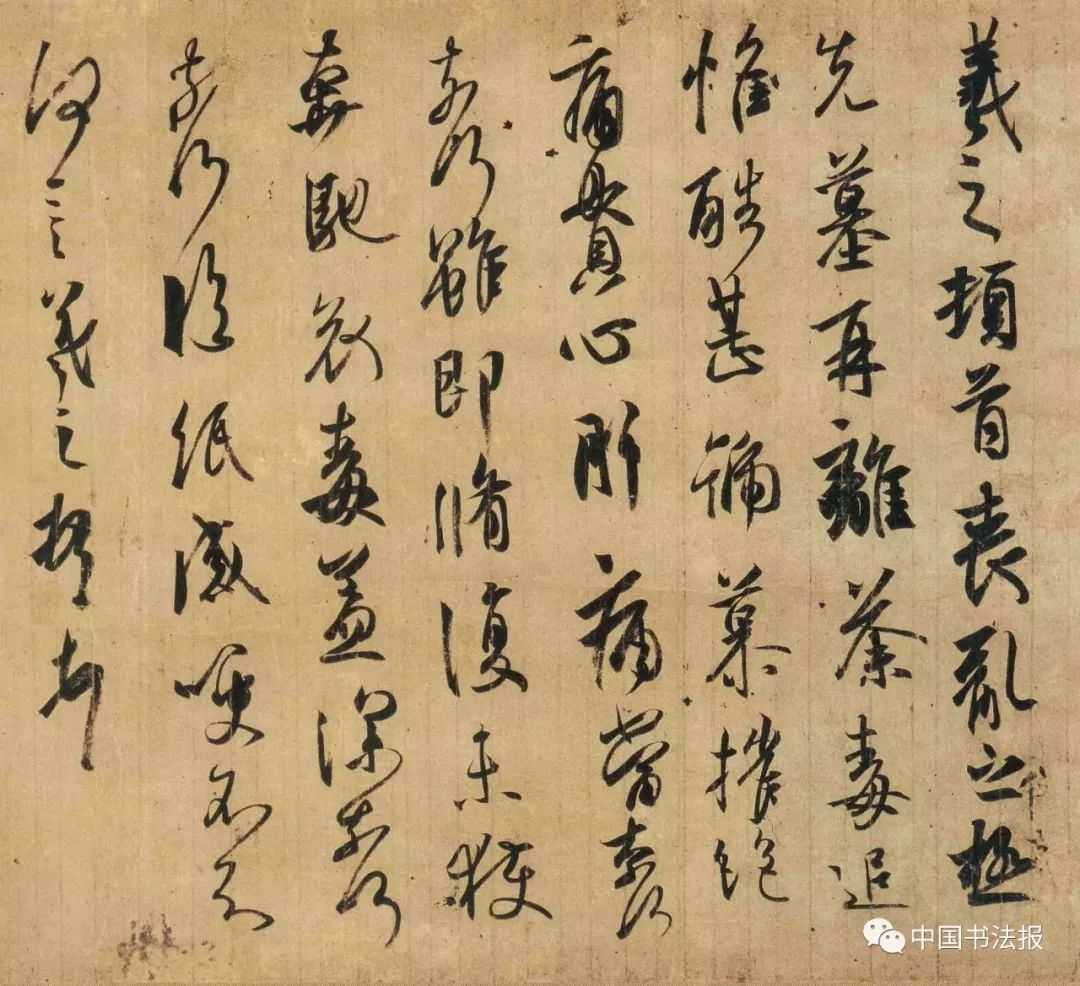 羲之頓首喪亂之極
先墓再離荼毒追
惟酷甚號慕摧絕
痛貫心肝痛當柰何
柰何雖即脩復未獲
奔馳哀毒益深柰何
柰何臨紙感哽不知
何言羲之頓首頓首
中国书法报